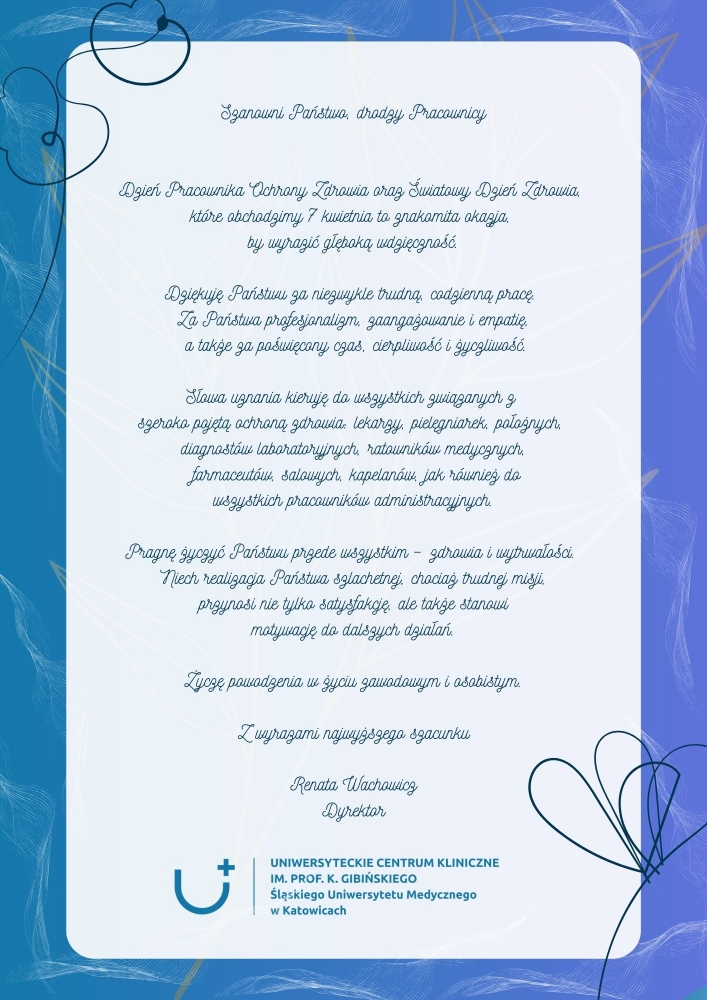 Szanowni Państwo, drodzy Pracownicy
Dzień Pracownika Ochrony Zdrowia oraz Światowy Dzień Zdrowia,
które obchodzimy 7 kwietnia to znakomita okazja,
by wyrazić głęboką wdzięczność.
Dziękuję Państwu za niezwykle trudną, codzienną pracę.
Za Państwa profesjonalizm, zaangażowanie i empatię,
a także za poświęcony czas, cierpliwość i życzliwość.
Słowa uznania kieruję do wszystkich związanych z
szeroko pojętą ochroną zdrowia: lekarzy, pielęgniarek, położnych,
diagnostów laboratoryjnych, ratowników medycznych,
farmaceutów, salowych, kapelanów, jak również do
wszystkich pracowników administracyjnych.
Pragnę życzyć Państwu przede wszystkim – zdrowia i wytrwałości.
Niech realizacja Państwa szlachetnej, chociaż trudnej misji,
przynosi nie tylko satysfakcję, ale także stanowi
motywację do dalszych działań.
Życzę powodzenia w życiu zawodowym i osobistym.
Z wyrazami najwyższego szacunku
Renata Wachowicz
Dyrektor
UNIWERSYTECKIE CENTRUM KLINICZNE
IM. PROF. K. GIBIŃSKIEGO
Śląskiego Uniwersytetu Medycznego
w Katowicach